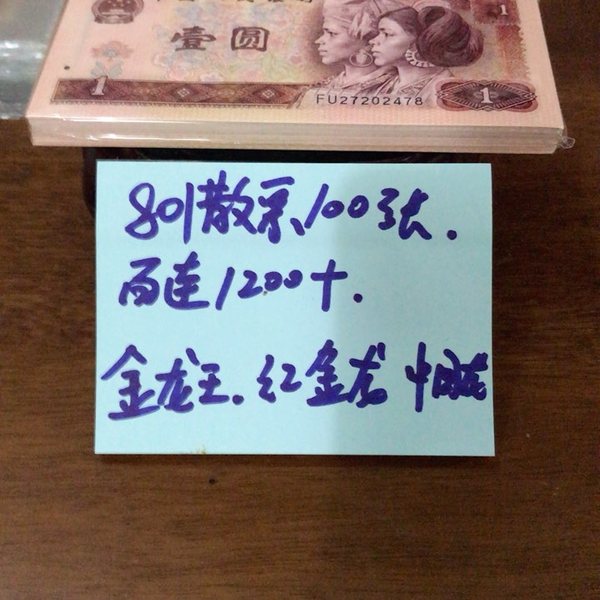 壹圆
1
FU27202478
1
1
801散票、100张.
百连1200+.
金龙王.红金龙